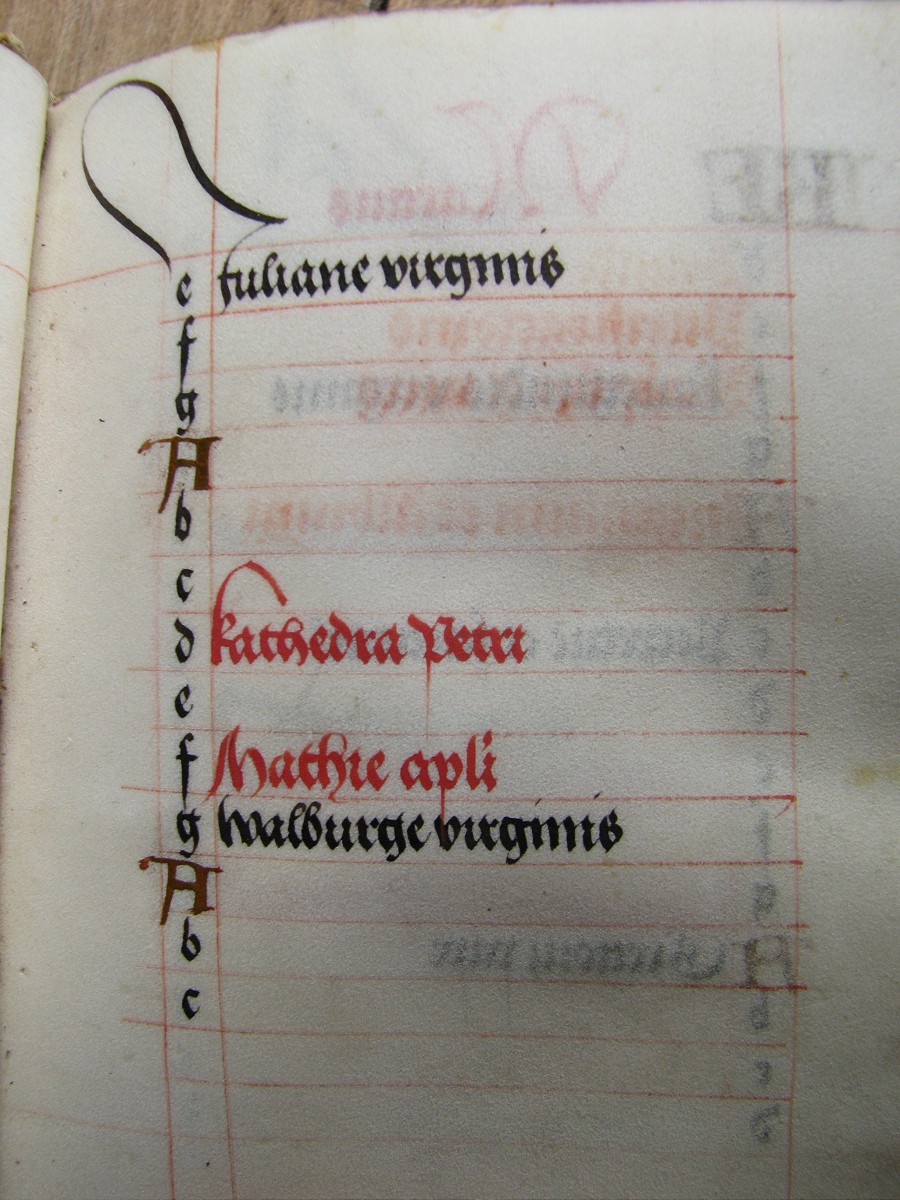 e Juliane virginis
f
g
A
b
c
d kathedra Petri
e
f Mathie apli
g walburge virginis
A
b
c